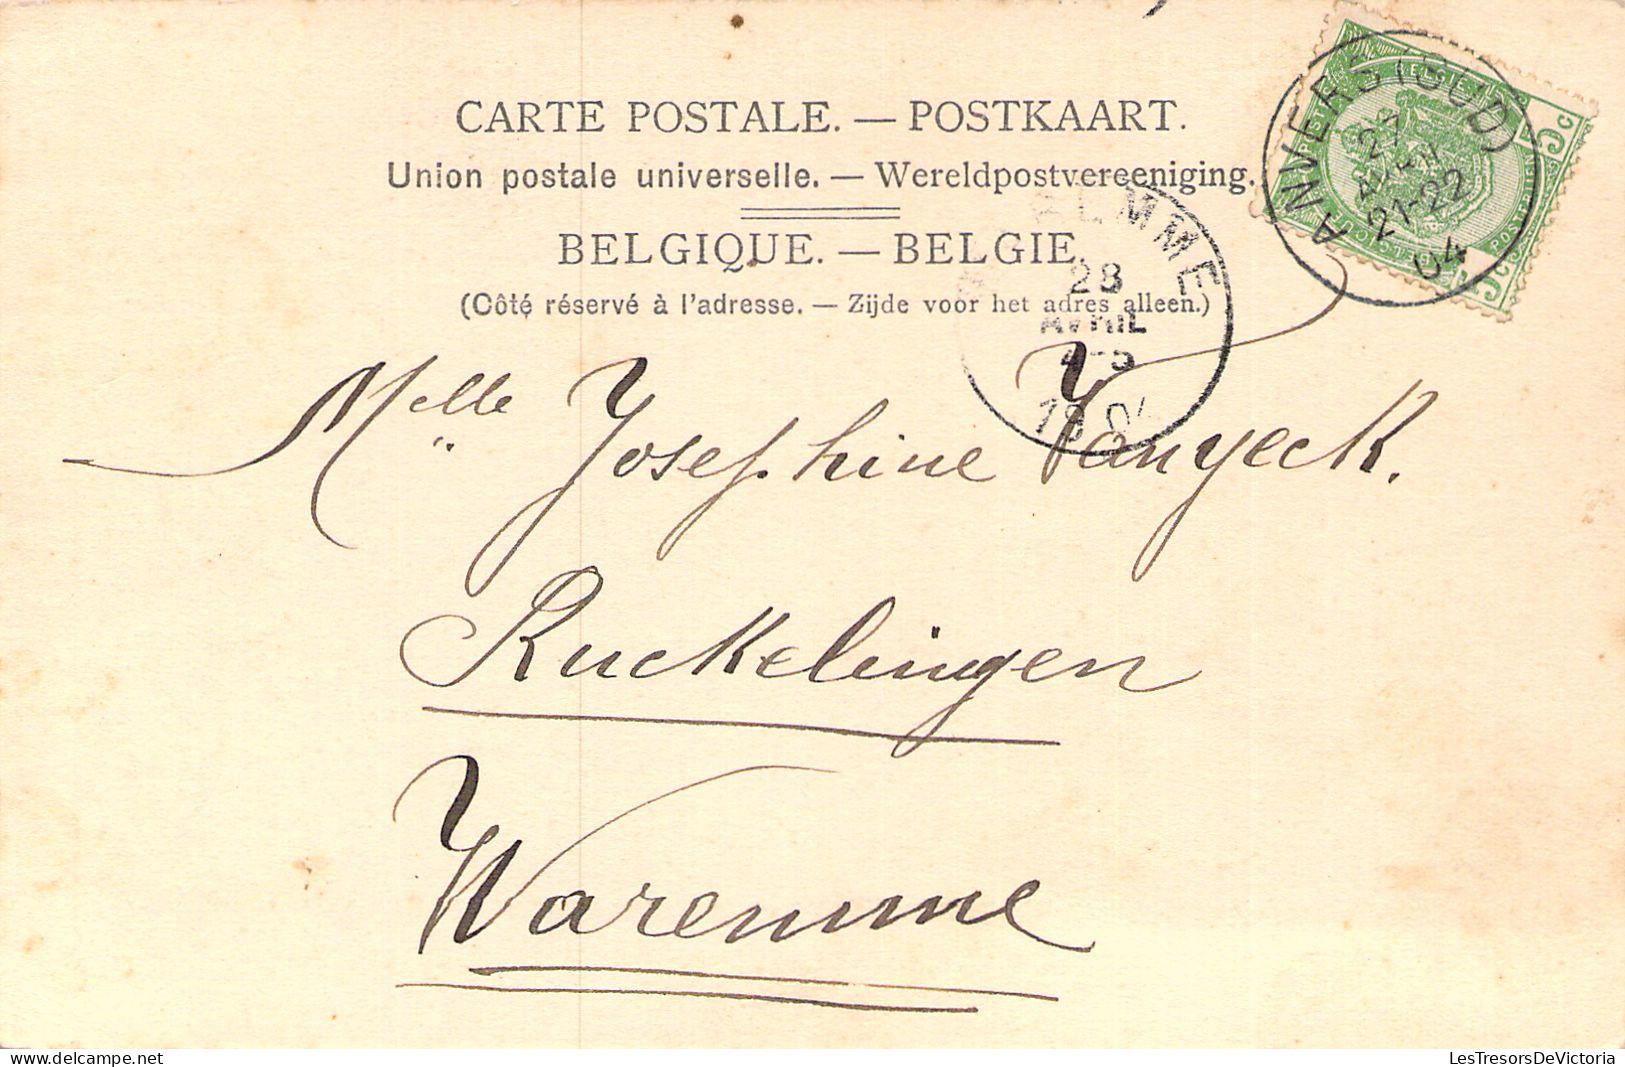 CARTE POSTALE. — POSTKAART.
Union postale universelle. — Wereldpostvereeniging.
BELGIQUE. — BELGIE.
(Côté réservé à l'adresse. — Zijde voor het adres alleen.)
ANVERS (SUD)
27
21-22
04
28
AVRIL
Melle Josephine Vanyeck.
Ruckelingen
Waremme
LesTresorsDeVictoria